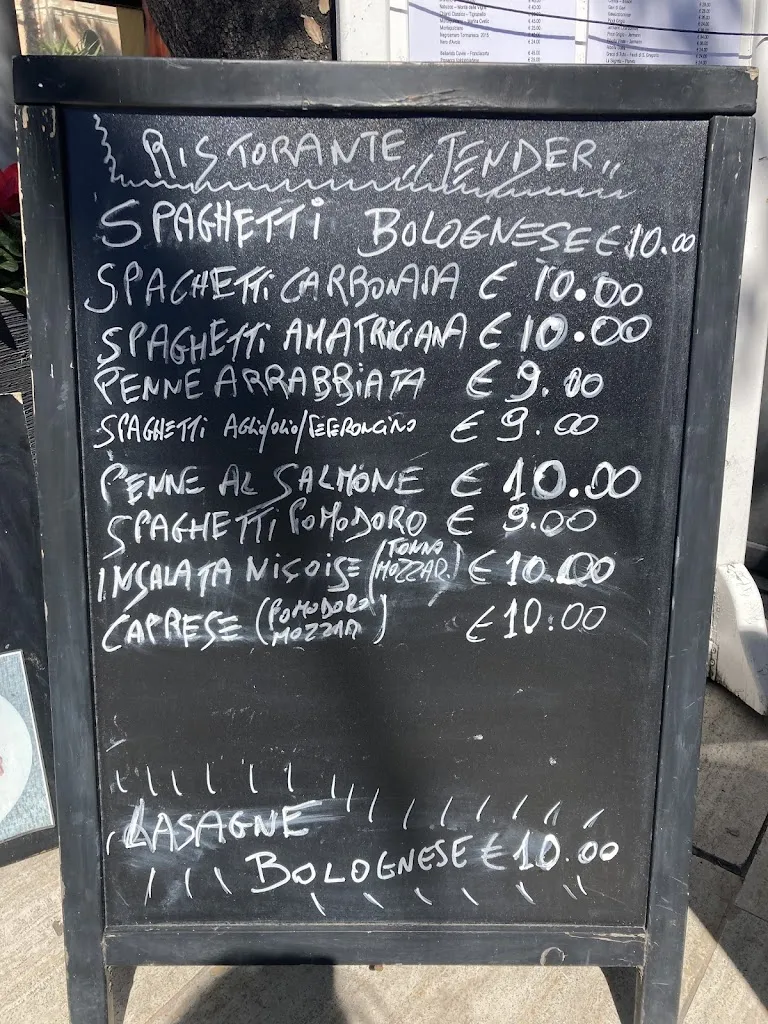 RISTORANTE „TENDER„
SPAGHETTI BOLOGNESE € 10.00
SPAGHETTI CARBONARA € 10.00
SPAGHETTI AMATRICIANA € 10.00
PENNE ARRABBIATA € 9.00
SPAGHETTI AGLIO/OLIO/PEPERONCINO € 9.00
PENNE AL SALMONE € 10.00
SPAGHETTI POMODORO € 9.00
INSALATA NISOISE (TONNO MOZZAR.) € 10.00
CAPRESE (POMODORO MOZZAR) € 10.00
LASAGNE
BOLOGNESE € 10.00